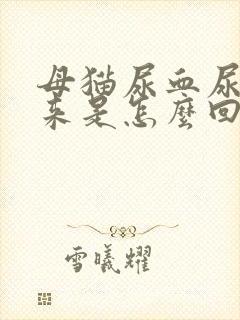 母猫尿血尿
来是怎麼回
雪曦耀